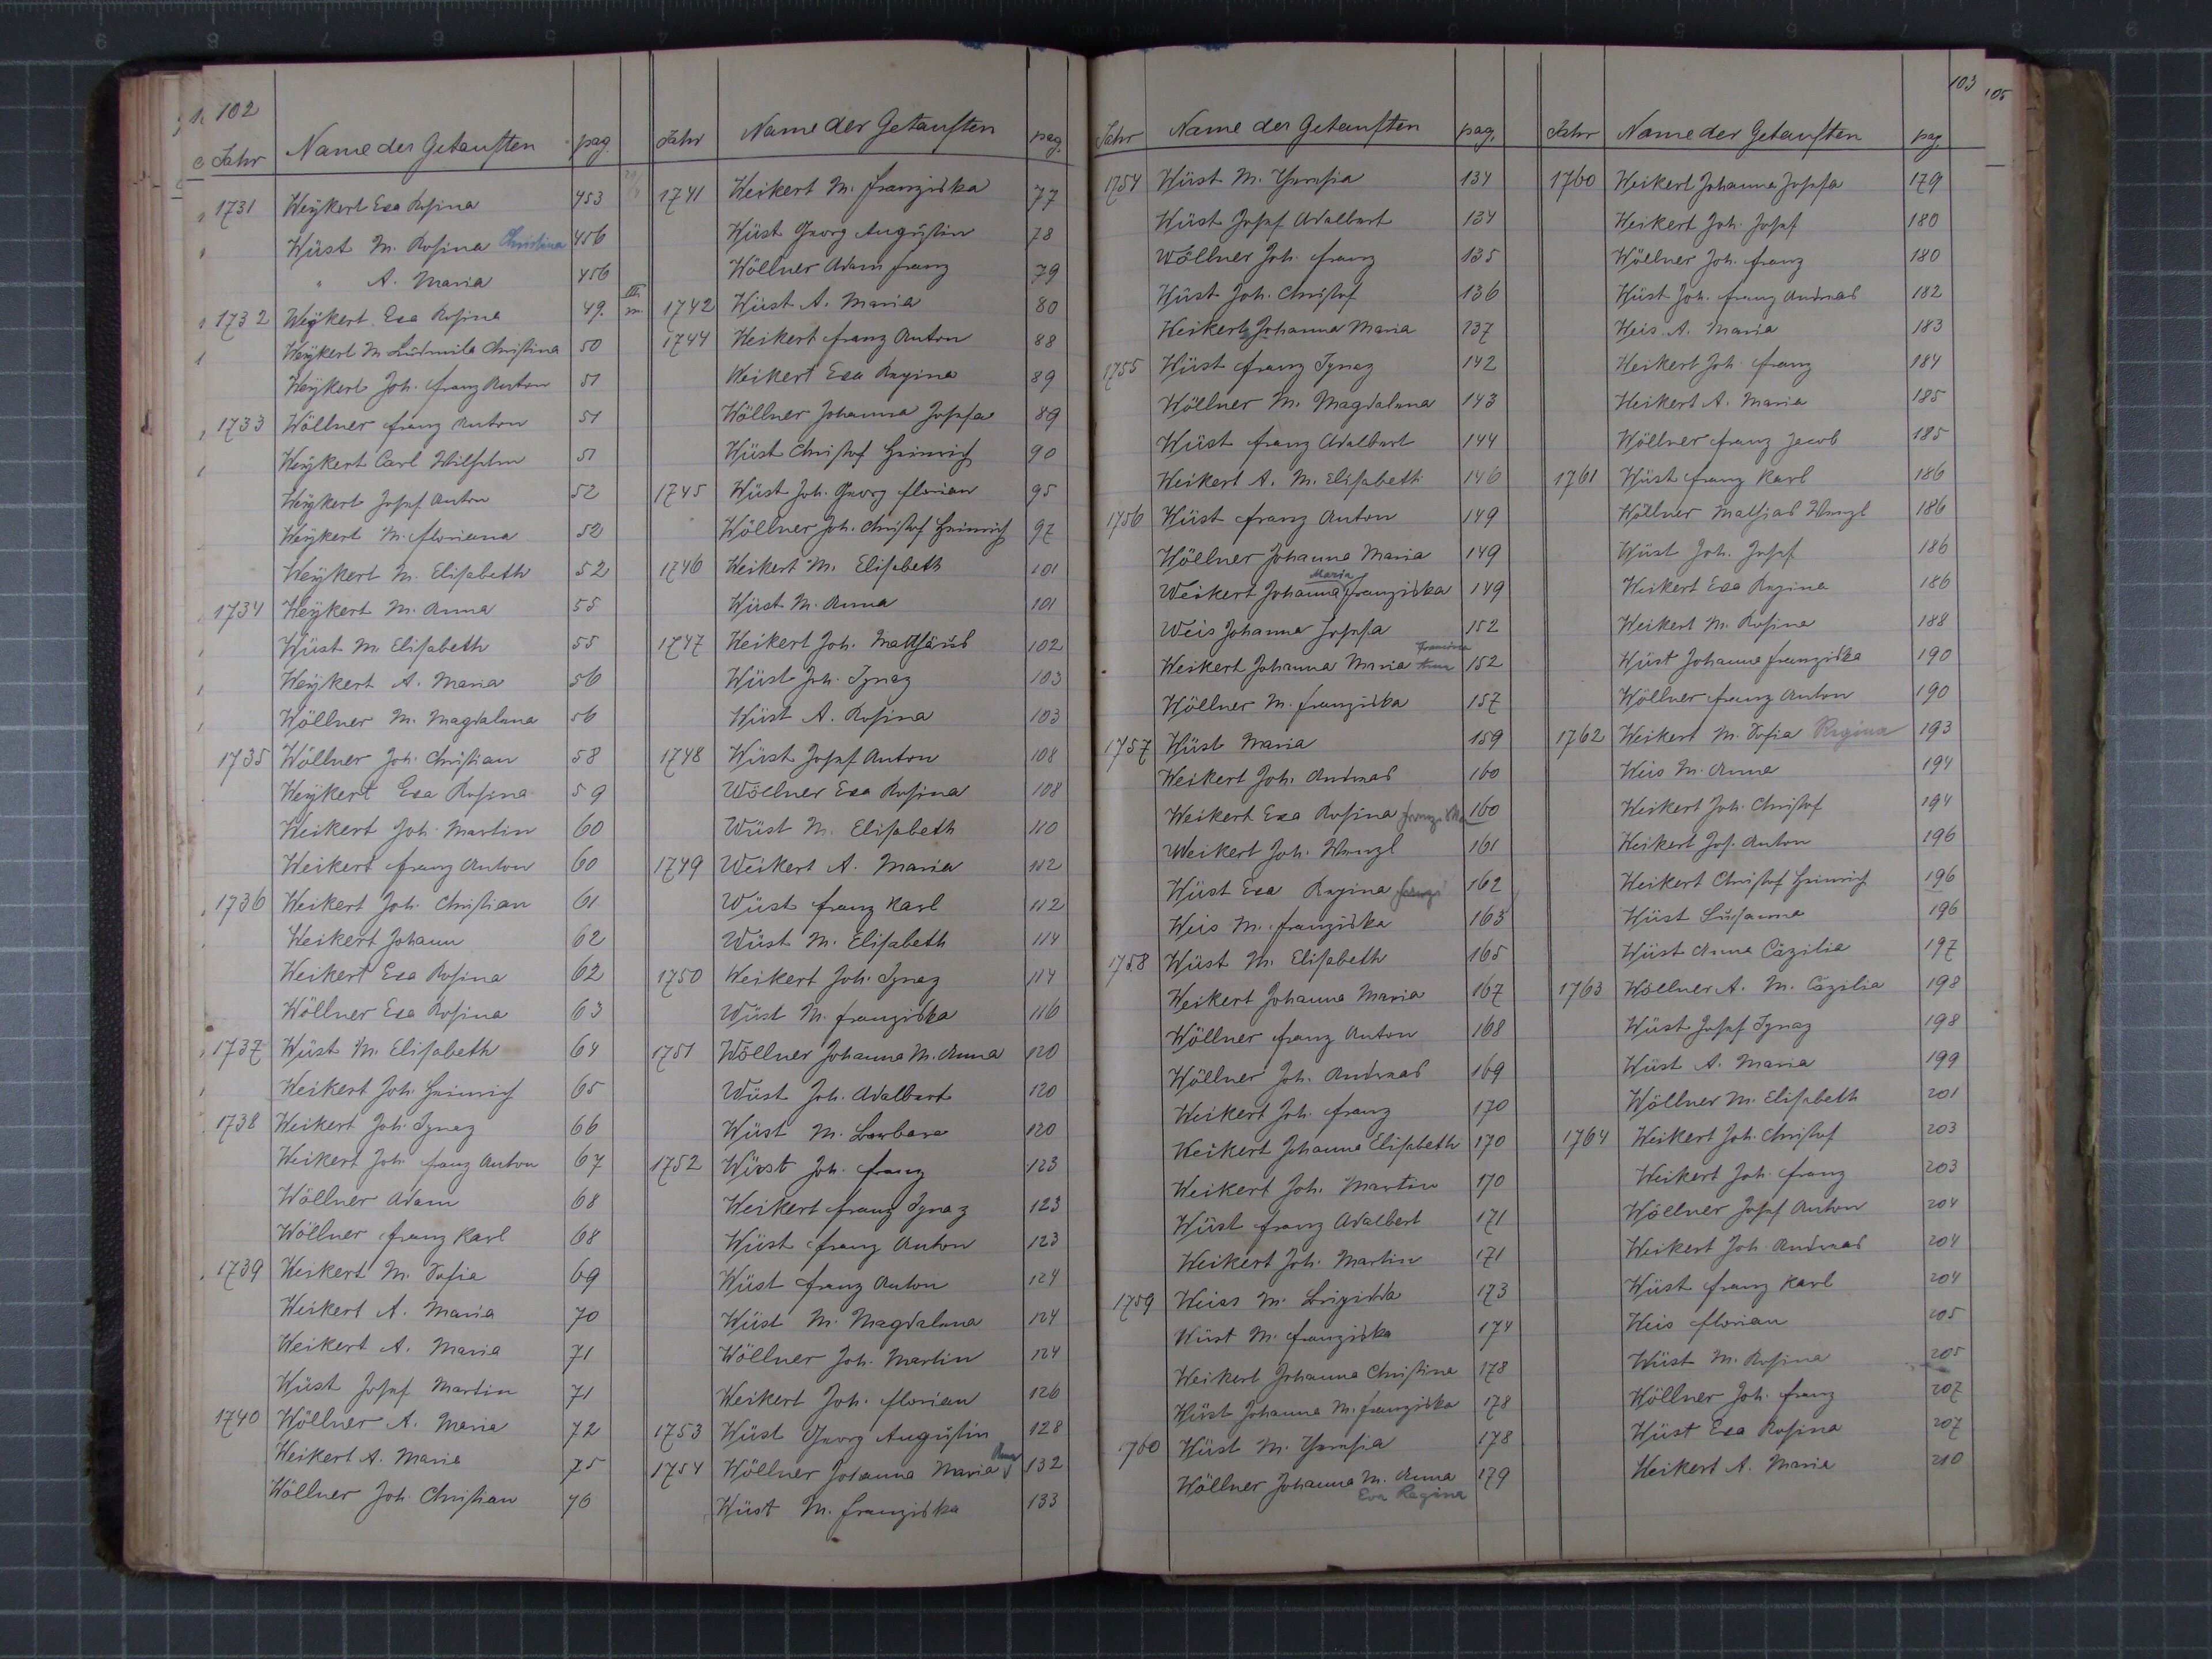 102
Jahr Name der Getauften pag.
1731 Weÿkert Eva Rosina 453
Wüst M. Rosina Christina 456
" A. Maria 456
1732 Weÿkert Eva Rosina 49. III m.
Weÿkert M Ludmila Christina 50
Weÿkert Joh. Franz Anton 51
1733 Wöllner Franz Anton 51
Weÿkert Carl Wilhelm 51
Weÿkert Josef Anton 52
Weÿkert M. Floriana 52
Weÿkert M. Elisabeth 52
1734 Weÿkert M. Anna 55
Wüst M. Elisabeth 55
Weÿkert A. Maria 56
Wöllner M. Magdalena 56
1735 Wöllner Joh. Christian 58
Weÿkert Eva Rosina 59
Weikert Joh. Martin 60
Weikert Franz Anton 60
1736 Weikert Joh. Christian 61
Weikert Johann 62
Weikert Eva Rosina 62
Wöllner Eva Rosina 63
1737 Wüst M. Elisabeth 64
Weikert Joh. Heinrich 65
1738 Weikert Joh. Ignaz 66
Weikert Joh. Franz Anton 67
Wöllner Adam 68
Wöllner Franz Karl 68
1739 Weikert M. Sofia 69
Weikert A. Maria 70
Weikert A. Maria 71
Wüst Josef Martin 71
1740 Wöllner A. Maria 72
Weikert A. Maria 75
Wöllner Joh. Christian 76
Jahr Name der Getauften pag.
1741 Weikert M. Franziska 77
Wüst Georg Augustin 78
Wöllner Adam Franz 79
1742 Wüst A. Maria 80
1744 Weikert Franz Anton 88
Weikert Eva Regina 89
Wöllner Johanna Josefa 89
Wüst Christof Heinrich 90
1745 Wüst Joh. Georg Florian 95
Wöllner Joh. Christof Heinrich 97
1746 Weikert M. Elisabeth 101
Wüst M. Anna 101
1747 Weikert Joh. Matthäus 102
Wüst Joh. Ignaz 103
Wüst A. Rosina 103
1748 Wüst Josef Anton 108
Wöllner Eva Rosina 108
Wüst M. Elisabeth 110
1749 Weikert A. Maria 112
Wüst Franz Karl 112
Wüst M. Elisabeth 114
1750 Weikert Joh. Ignaz 114
Wüst M. Franziska 116
1751 Wöllner Johanna M. Anna 120
Wüst Joh. Adalbert 120
Wüst M. Barbara 120
1752 Wüst Joh. Franz 123
Weikert Franz Ignaz 123
Wüst Franz Anton 123
Wüst Franz Anton 124
Wüst M. Magdalena 124
Wöllner Joh. Martin 124
Weikert Joh. Florian 126
1753 Wüst Georg Augustin 128
1754 Wöllner Johanna Maria Anna 132
Wüst M. Franziska 133
Jahr Name der Getauften pag.
1754 Wüst M. Theresia 134
Wüst Josef Adalbert 134
Wöllner Joh. Franz 135
Wüst Joh. Christof 136
Weikert Johanna Maria 137
1755 Wüst Franz Ignaz 142
Wöllner M. Magdalena 143
Wüst Franz Adalbert 144
Weikert A. M. Elisabeth 146
1756 Wüst Franz Anton 149
Wöllner Johanna Maria 149
Weikert Johanna Maria Franziska 149
Weis Johanna Josefa 152
Weikert Johanna Maria 152
Wöllner M. Franziska 157
1757 Wüst Maria 159
Weikert Joh. Andreas 160
Weikert Eva Rosina Franziska 160
Weikert Joh. Wenzl 161
Wüst Eva Regina 162
Weis M. Franziska 163
1758 Wüst M. Elisabeth 165
Weikert Johanna Maria 167
Wöllner Franz Anton 168
Wöllner Joh. Andreas 169
Weikert Joh. Franz 170
Weikert Johanna Elisabeth 170
Weikert Joh. Martin 170
Wüst Franz Adalbert 171
Weikert Joh. Martin 171
1759 Weiss M. Brigitta 173
Wüst M. Franziska 174
Weikert Johanna Christina 178
Wüst Johanna M. Franziska 178
1760 Wüst M. Theresia 178
Wöllner Johanna M. Anna 179
Eva Regina
103 105
Jahr Name der Getauften pag.
1760 Weikert Johanna Josefa 179
Weikert Joh. Josef 180
Wöllner Joh. Franz 180
Wüst Joh. Franz Andreas 182
Weis A. Maria 183
Weikert Joh. Franz 184
Weikert A. Maria 185
Wöllner Franz Jacob 185
1761 Wüst Franz Karl 186
Wöllner Mathias Wenzl 186
Wüst Joh. Josef 186
Weikert Eva Regina 186
Weikert M. Rosina 188
Wüst Johanna Franziska 190
Wöllner Franz Anton 190
1762 Weikert M. Sofia Regina 193
Weis M. Anna 194
Weikert Joh. Christof 194
Weikert Jos. Anton 196
Weikert Christof Heinrich 196
Wüst Susanna 196
Wüst Anna Cäzilia 197
1763 Wöllner A. M. Cäzilia 198
Wüst Josef Ignaz 198
Wüst A. Maria 199
Wöllner M. Elisabeth 201
1764 Weikert Joh. Christof 203
Weikert Joh. Franz 203
Wöllner Josef Anton 204
Weikert Joh. Andreas 204
Wüst Franz Karl 204
Weis Florian 205
Wüst M. Rosina 205
Wöllner Joh. Franz 207
Wüst Eva Rosina 207
Weikert A. Maria 210